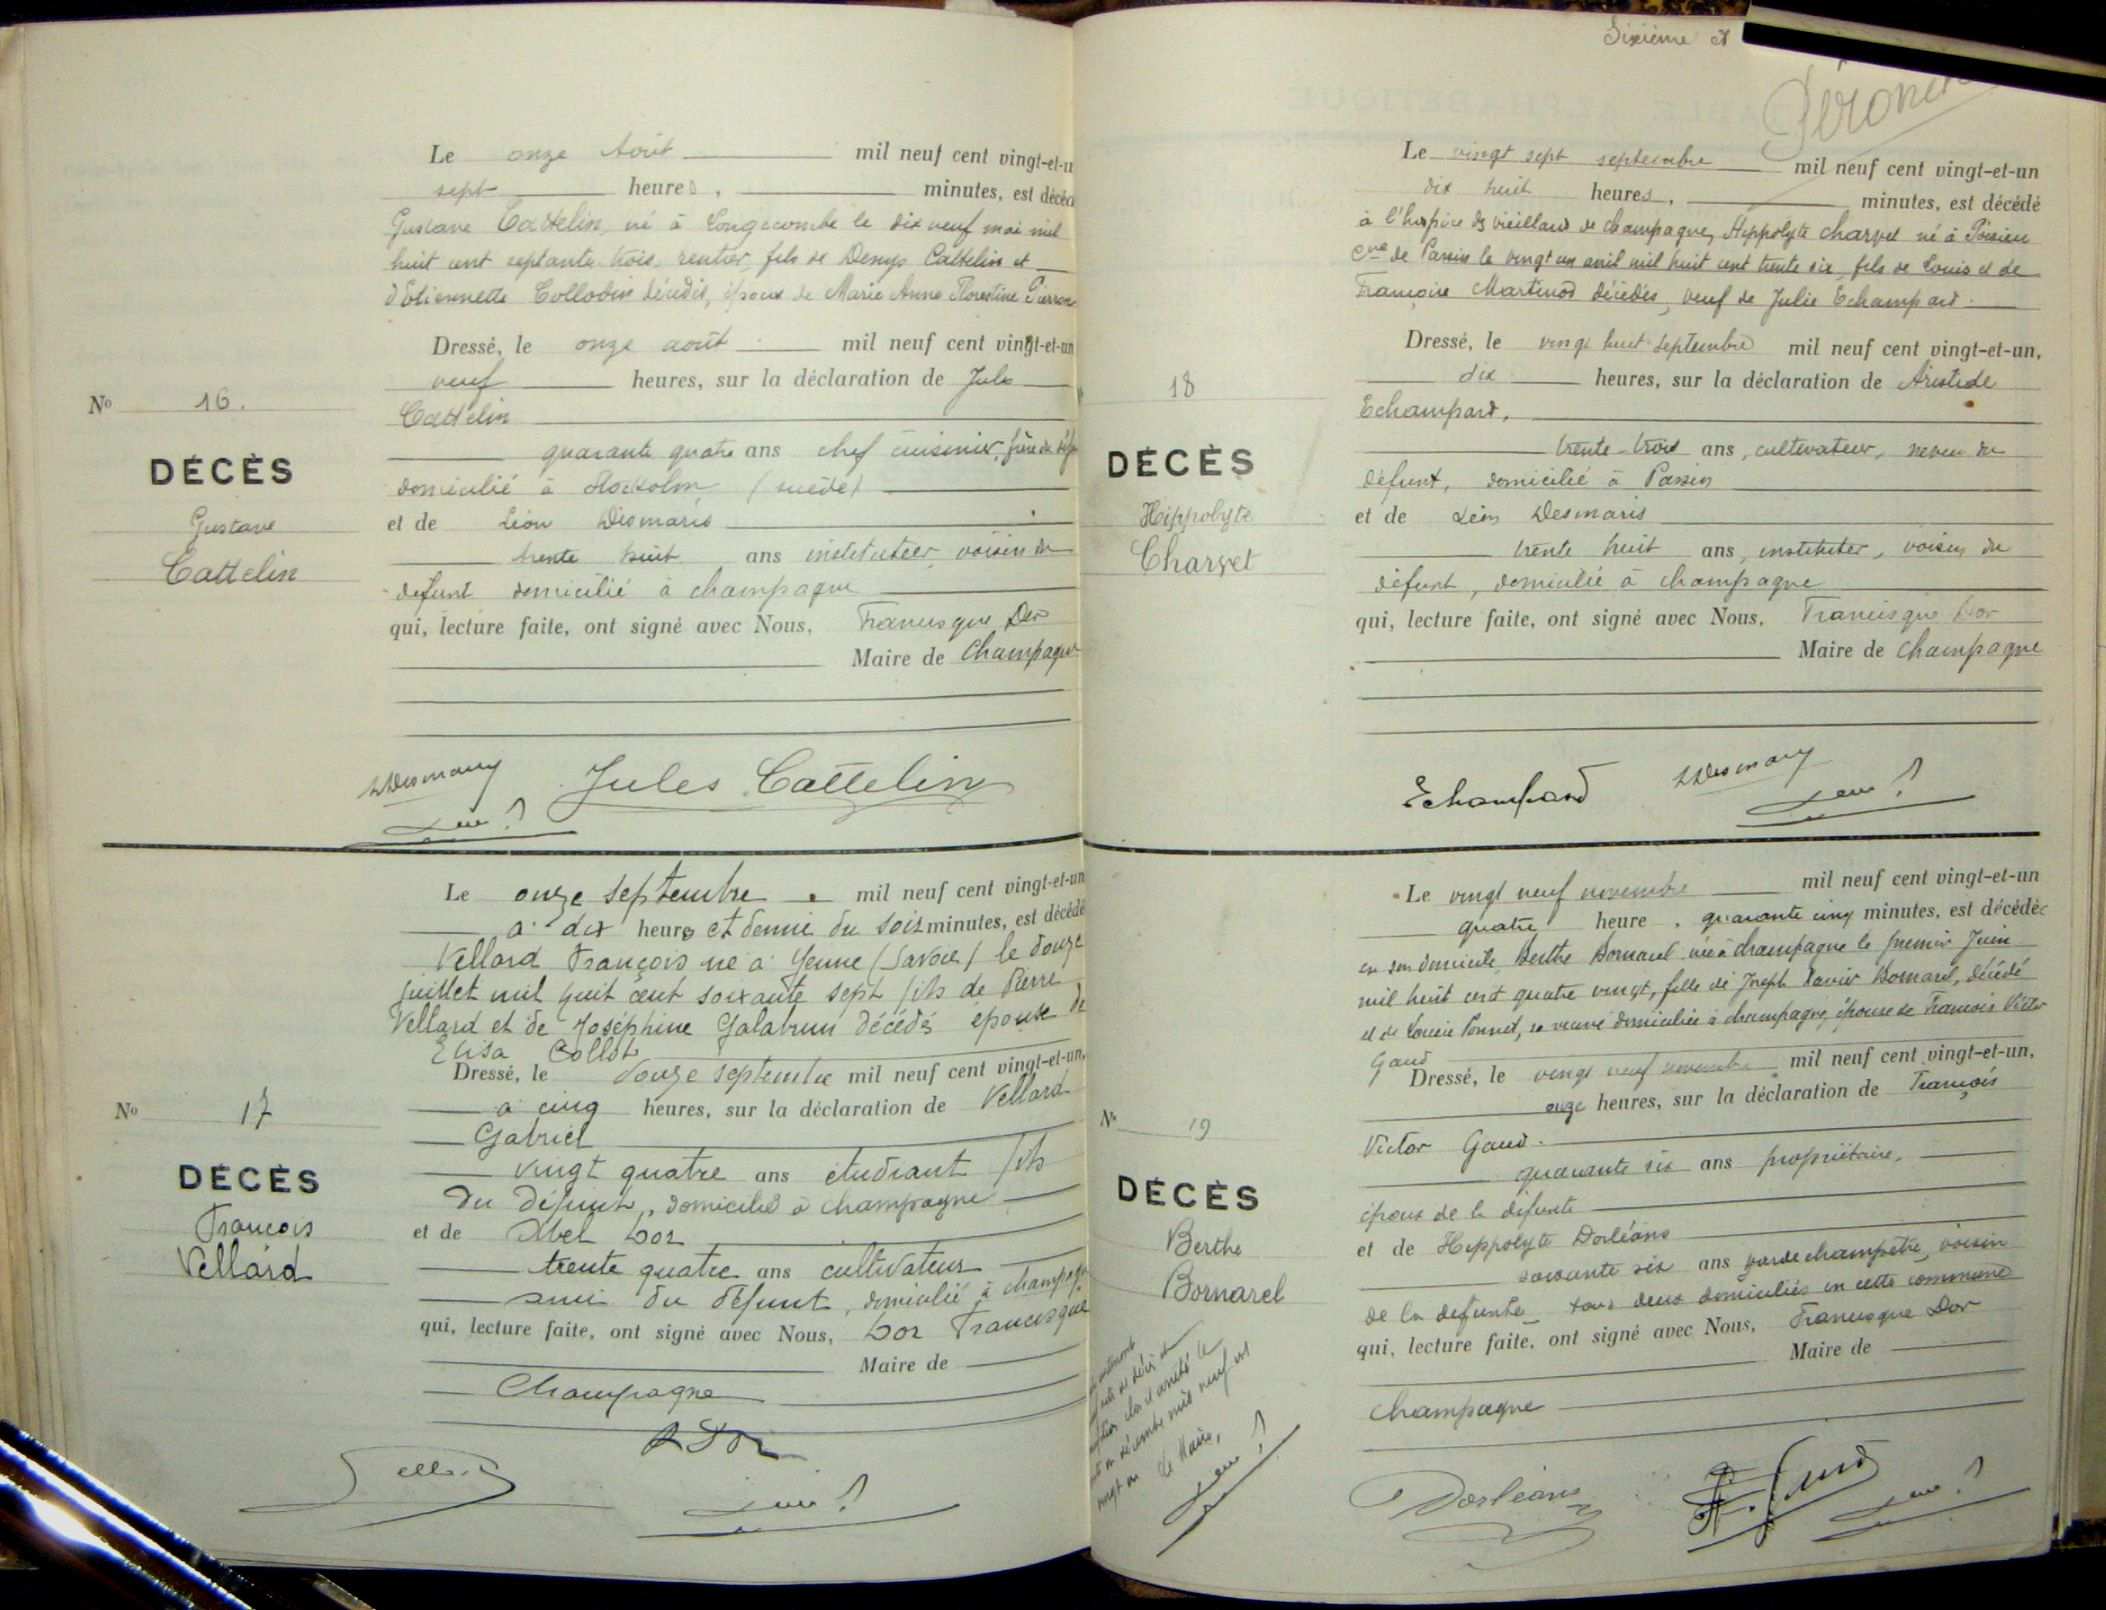 Le onze Août mil neuf cent vingt-et-u
sept heures, minutes, est décéd
Gustave Cattelin, né à Songecombe le dix neuf mai mil
huit cent septante trois, rentier, fils de Denys Cattelin et
d'Etiennette Collodin décédés, époux de Marie Anne Florestine Pierron
Dressé, le onze août mil neuf cent vingt-et-un
neuf heures, sur la déclaration de Jules
Cattelin
quarante quatre ans chef cuisinier, frère du
domicilié à Stockolm (suède)
et de Léon Desmaris
trente huit ans instituteur, voisin du
defunt domicilié à champagne
qui, lecture faite, ont signé avec Nous, Francisque Dor
Maire de Champagne
No 16.
DÉCÈS
Gustave
Cattelin
LDesmaris Jules Cattelin
Le onze septembre mil neuf cent vingt-et-un
à dix heures et demie du soir minutes, est décédé
Vellard François né à Yenne (Savoie) le douze
juillet mil huit cent soixante sept fils de Pierre
Vellard et de Joséphine Galabrun décédés epoux de
Elisa Collot
Dressé, le douze septembre mil neuf cent vingt-et-un,
à cinq heures, sur la déclaration de Vellard
Gabriel
vingt quatre ans étudiant fils
du défunt, domicilié à champagne
et de Abel Dor
trente quatre ans cultivateur
ami du défunt, domicilié à champagne
qui, lecture faite, ont signé avec Nous, Dor Francisque
Maire de
Champagne
No 17
DÉCÈS
François
Vellard
A Dor
Sixième et
Péronin
Le vingt sept septembre mil neuf cent vingt-et-un
dix huit heures, minutes, est décédé
à l'hospice des vieillards de champagne, Hippolyte charvet né à Poisieu
Cne de Passin le vingt un avril mil huit cent trente six, fils de Louis et de
Françoise Martinod décédés, veuf de Julie Echampard.
Dressé, le vingt huit septembre mil neuf cent vingt-et-un,
dix heures, sur la déclaration de Aristide
Echampard,
trente-trois ans, cultivateur, neveu du
défunt, domicilié à Passin
et de Léon Desmaris
trente huit ans, instituteur, voisin du
défunt, domicilié à champagne
qui, lecture faite, ont signé avec Nous, Francisque Dor
Maire de Champagne
18
DÉCÈS
Hippolyte
Charvet
Echampard LDesmaris
Le vingt neuf novembre mil neuf cent vingt-et-un
quatre heure, quarante cinq minutes, est décédée
en son domicile Berthe Bornarel née à champagne le premier Juin
mil huit cent quatre vingt, fille de Joseph Xavier Bornarel, décédé
et de Louise Ponnet, sa veuve domiciliée à champagne, épouse de François Victor
Gaud
Dressé, le vingt neuf novembre mil neuf cent vingt-et-un,
onze heures, sur la déclaration de François
Victor Gaud.
quarante six ans propriétaire,
époux de la défunte
et de Hippolyte Dorléans
soixante six ans garde champêtre, voisin
de la defunte tous deux domiciliés en cette commune
qui, lecture faite, ont signé avec Nous, Francisque Dor
Maire de
champagne
No 19
DÉCÈS
Berthe
Bornarel
clos et arrêté le
décembre mil neuf cent
vingt un Le Maire,
Dorléans